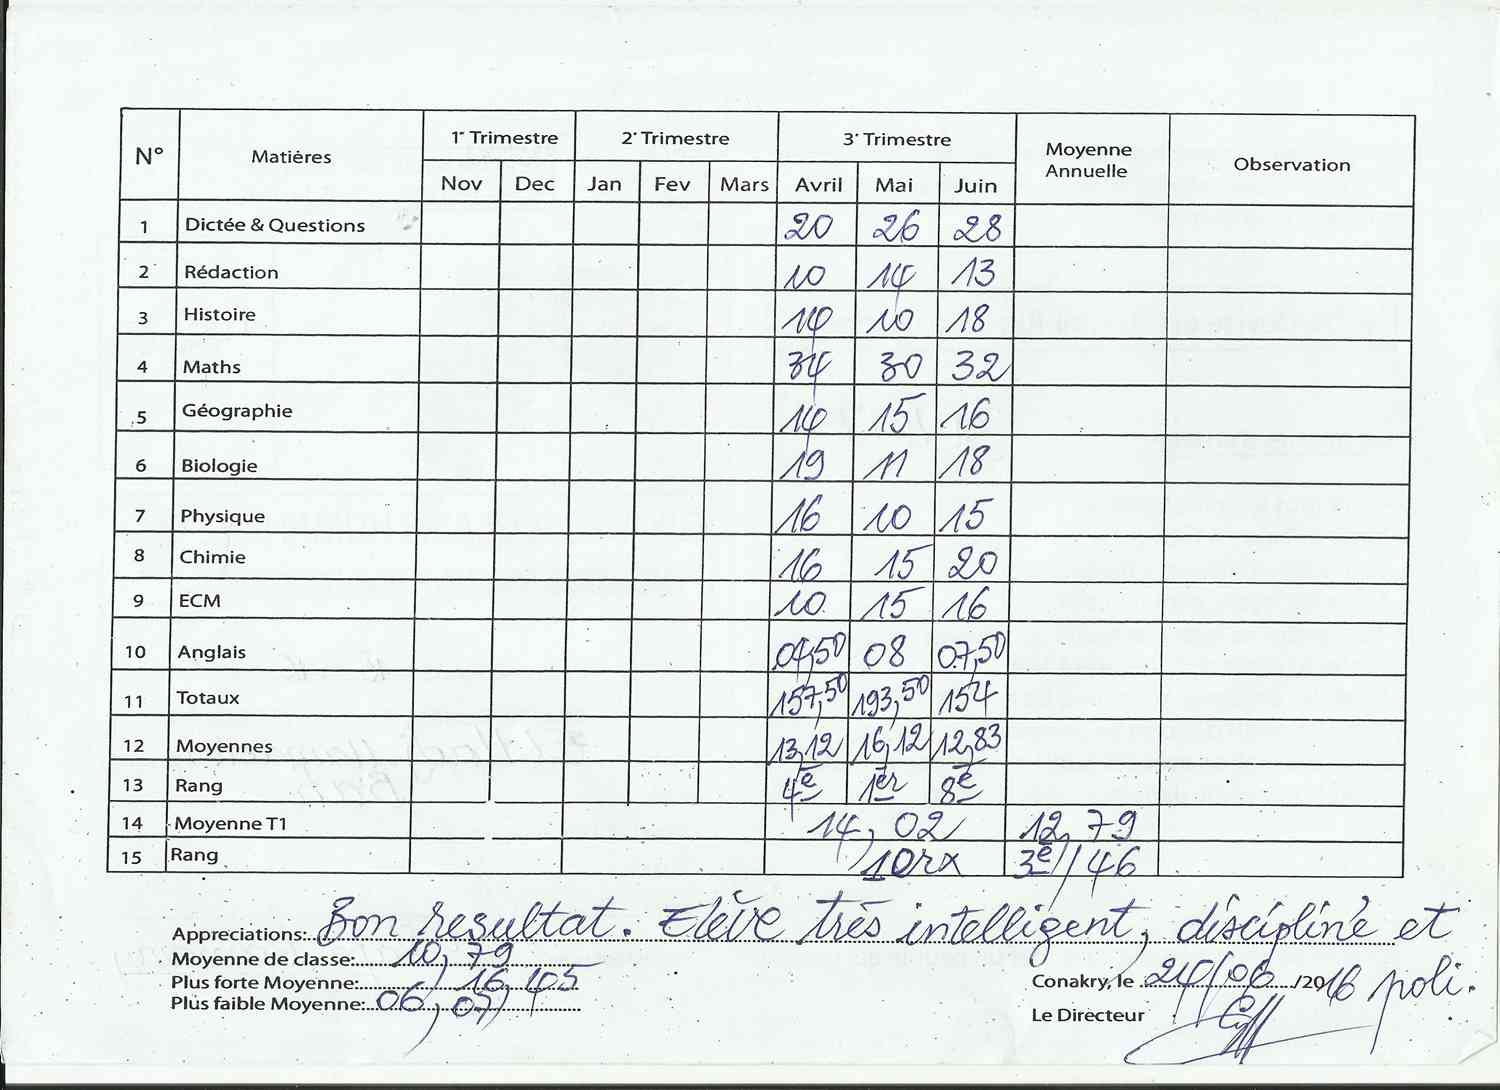 N° Matières 1er Trimestre 2e Trimestre 3e Trimestre Moyenne Annuelle Observation
Nov Dec Jan Fev Mars Avril Mai Juin
1 Dictée & Questions 20 26 28
2 Rédaction 10 14 13
3 Histoire 14 10 18
4 Maths 34 30 32
5 Géographie 14 15 16
6 Biologie 19 11 18
7 Physique 16 10 15
8 Chimie 16 15 20
9 ECM 10 15 16
10 Anglais 04,50 08 07,50
11 Totaux 157,50 193,50 154
12 Moyennes 13,12 16,12 12,83
13 Rang 4e 1er 8e
14 Moyenne T1 14,02 12,79
15 Rang 3e/46
Appreciations: Bon resultat. Elève très intelligent, discipliné et poli.
Moyenne de classe: 10,79
Plus forte Moyenne: 16,05
Plus faible Moyenne: 06,07
Conakry, le 24/06/2016
Le Directeur